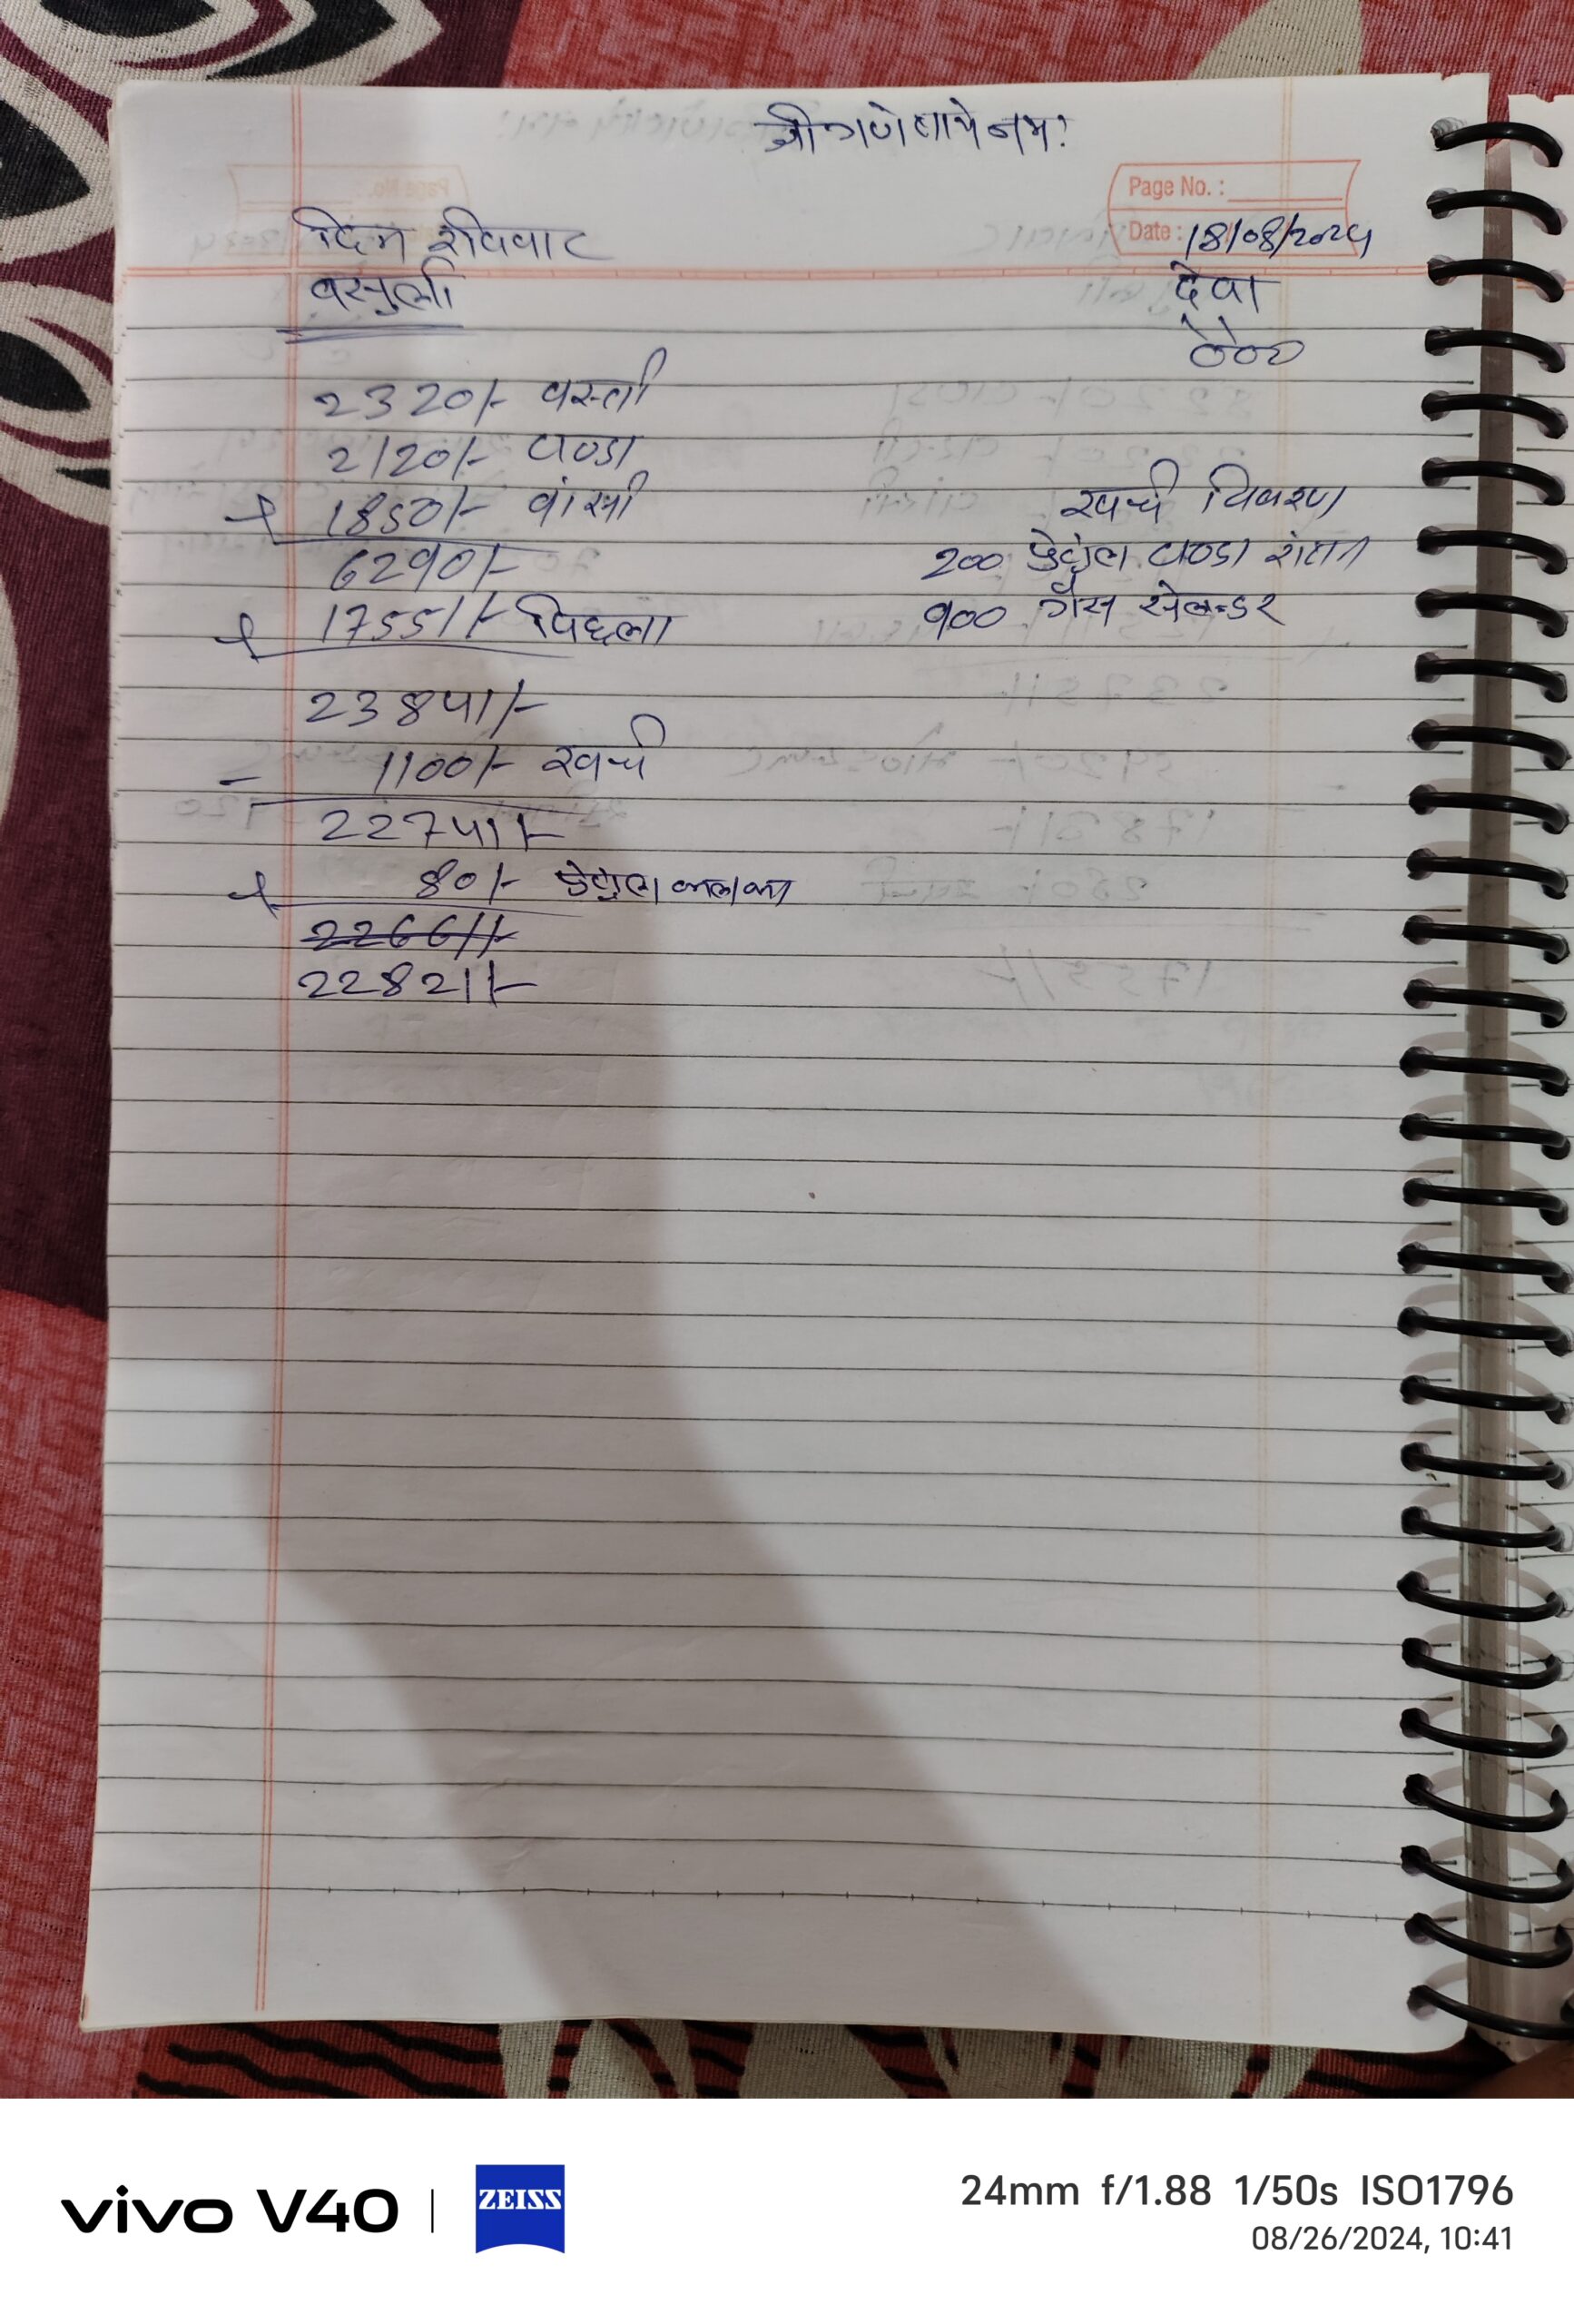 श्री गणेशाये नमः
Page No. :
दिन रविवार
Date : 18/08/2024
वसुली
देवा
2320/- बस्ती
2120/- पाण्डा
+ 1850/- बांसी
खर्चा विवरण
6290/-
200 पेट्रोल पाण्डा रांतन
+ 17551/- पिछला
900 गैस सेलन्डर
23841/-
- 1100/- खर्चा
22741/-
+ 80/- पेट्रोल
22661/-
22821/-
vivo V40 | ZEISS
24mm f/1.88 1/50s ISO1796
08/26/2024, 10:41